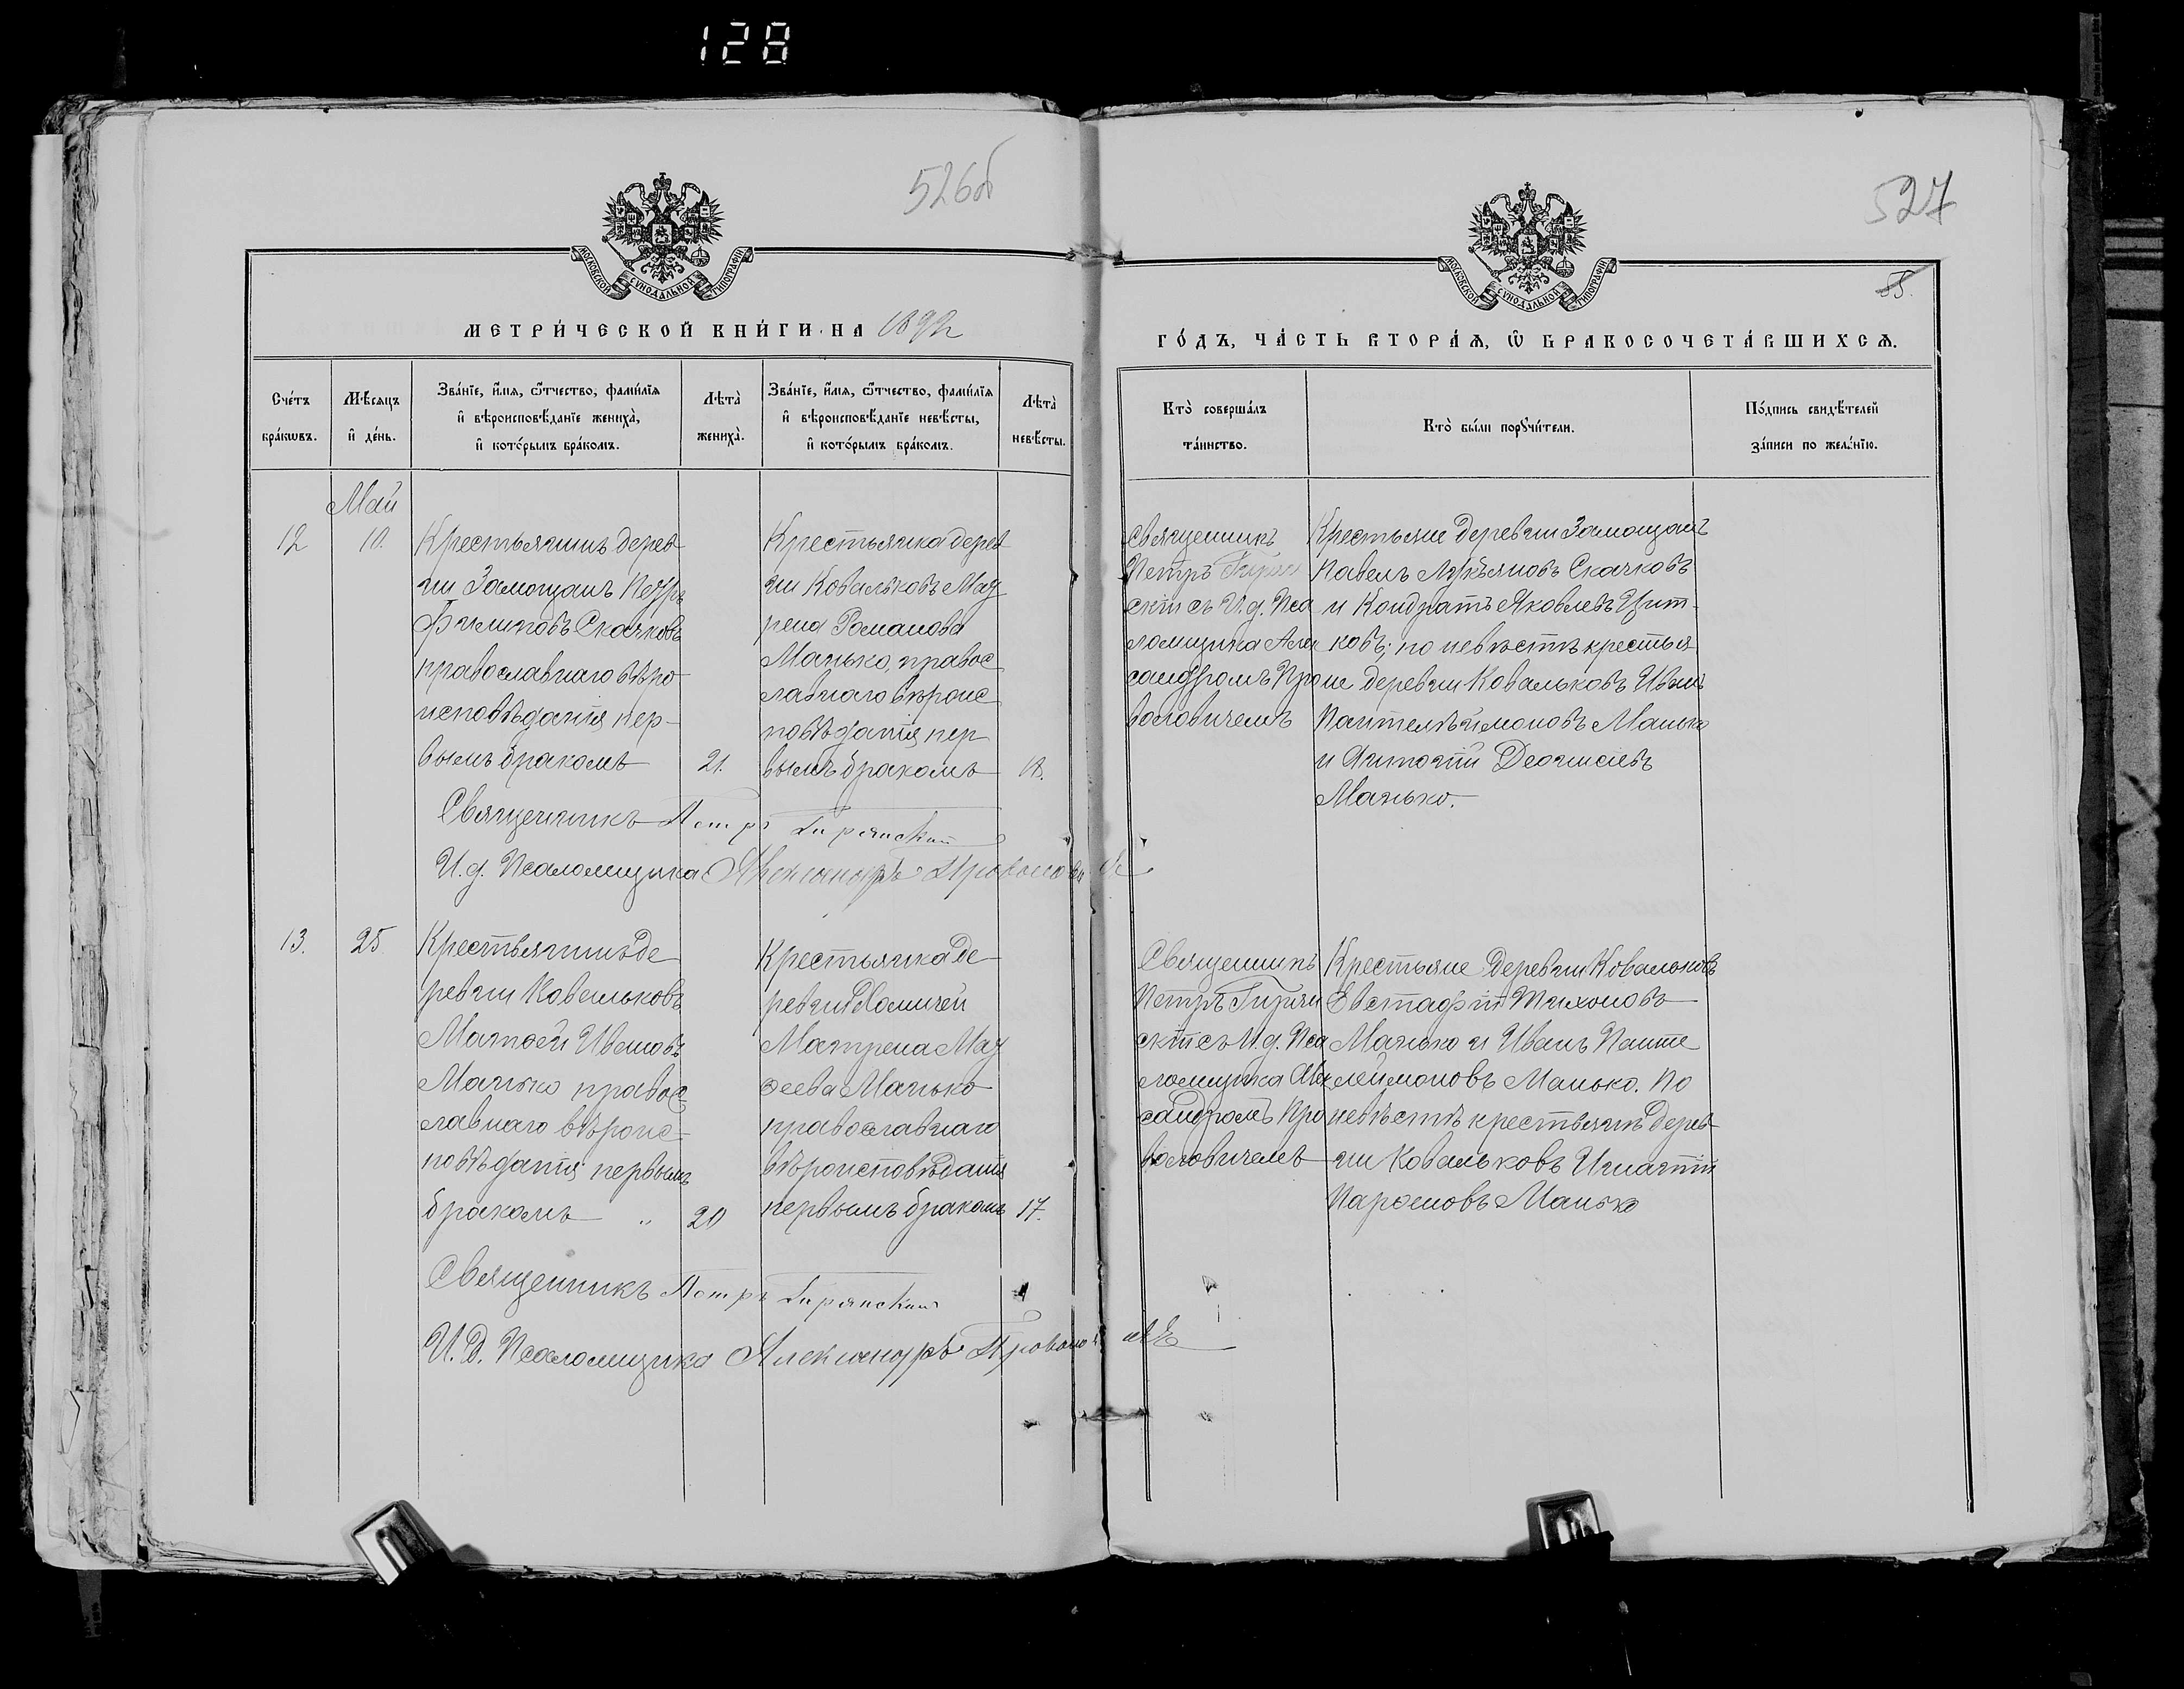 128
526б
МОСКОВСКОЙ СУНОДАЛЬНОЙ ТИПОГРАФІИ
МЕТРИ́ЧЕСКОЙ КНИ́ГИ НА 1892
Сче́тъ бра́кѡвъ.
Мѣ́сяцъ и҆ де́нь.
Зва́нїе, и҆́мя, ѻ҆́тчество, фами́лїя
и҆ вѣроисповѣ́данїе жениха̀,
и҆ кото́рымъ бра́комъ.
Лѣта̀ жениха̀.
Зва́нїе, и҆́мя, ѻ҆́тчество, фами́лїя
и҆ вѣроисповѣ́данїе невѣ́сты,
и҆ кото́рымъ бра́комъ.
Лѣта̀ невѣ́сты.
Май
12
10.
Крестьянинъ дерев
ни Замощанъ Петръ
Филиповъ Скачковъ
православнаго вѣро
исповѣданія пер-
вымъ бракомъ
21.
Крестьянка дерев
ни Ковальковъ Мат
рена Романова
Манько, правос
лавнаго вѣроис
повѣданія пер
вымъ бракомъ
18.
Священникъ Петръ Гирянскій
И.д. Псаломщика Александръ Проволовичъ
13.
25
Крестьянинъ де
ревни Ковальковъ
Матѳей Ивановъ
Манько правос
лавнаго вѣроис-
повѣданія первымъ
бракомъ „
20
Крестьянка де
ревни
Матрена Мат
ѳеева Манько
православнаго
вѣроисповѣданія
первымъ бракомъ
17.
Священникъ Петръ Гирянскій
И.Д. Псаломщика Александръ Проволовичъ
527
55.
МОСКОВСКОЙ СУНОДАЛЬНОЙ ТИПОГРАФІИ
ГО́ДЪ, ЧА́СТЬ ВТОРА́Я, Ѽ БРАКОСОЧЕТА́ВШИХСЯ.
Кто̀ соверша́лъ
та́инство.
Кто̀ бы́ли порꙋчи́тели.
По́дпись свидѣ́телей
за́писи по жела́нїю.
Священникъ
Петръ Гирян
скій съ И.д. Пса
ломщика Алек
сандромъ Про
воловичемъ
Крестьяне деревни Замощанъ
Павелъ Лукьяновъ Скачковъ
и Кондратъ Яковлевъ Цит-
ковъ; по невѣстѣ крестья
не деревни Ковальковъ Иванъ
Пантелѣймоновъ Манько
и Антоній Деонисіевъ
Манько.
Священникъ
Петръ Гирян
скій съ И.д. Пса
ломщика Алек
сандромъ Про
воловичемъ
Крестьяне деревни Ковальковъ
Евстафій Тихоновъ
Манько и Иванъ Панте
леймоновъ Манько. По
невѣстѣ крестьянъ дерев
ни Ковальковъ Игнатій
Парѳеновъ Манько